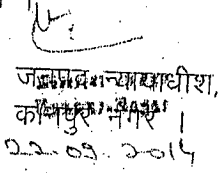 जनपद न्यायाधीश,
कानपुर नगर।
22.09.2014